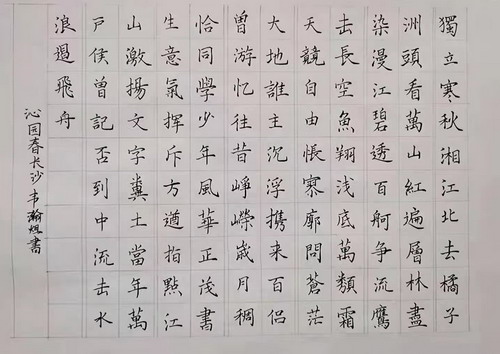 獨立寒秋湘江北去橘子
洲頭看萬山紅遍層林盡
染漫江碧透百舸争流鷹
击長空魚翔浅底萬類霜
天競自由悵寥廓問蒼茫
大地誰主沉浮携来百侣
曾游忆往昔峥嶸歲月稠
恰同學少年風華正茂書
生意氣挥斥方遒指點江
山激揚文字糞土當年萬
户侯曾記否到中流击水
浪遏飛舟
沁园春长沙韦瀚煜書